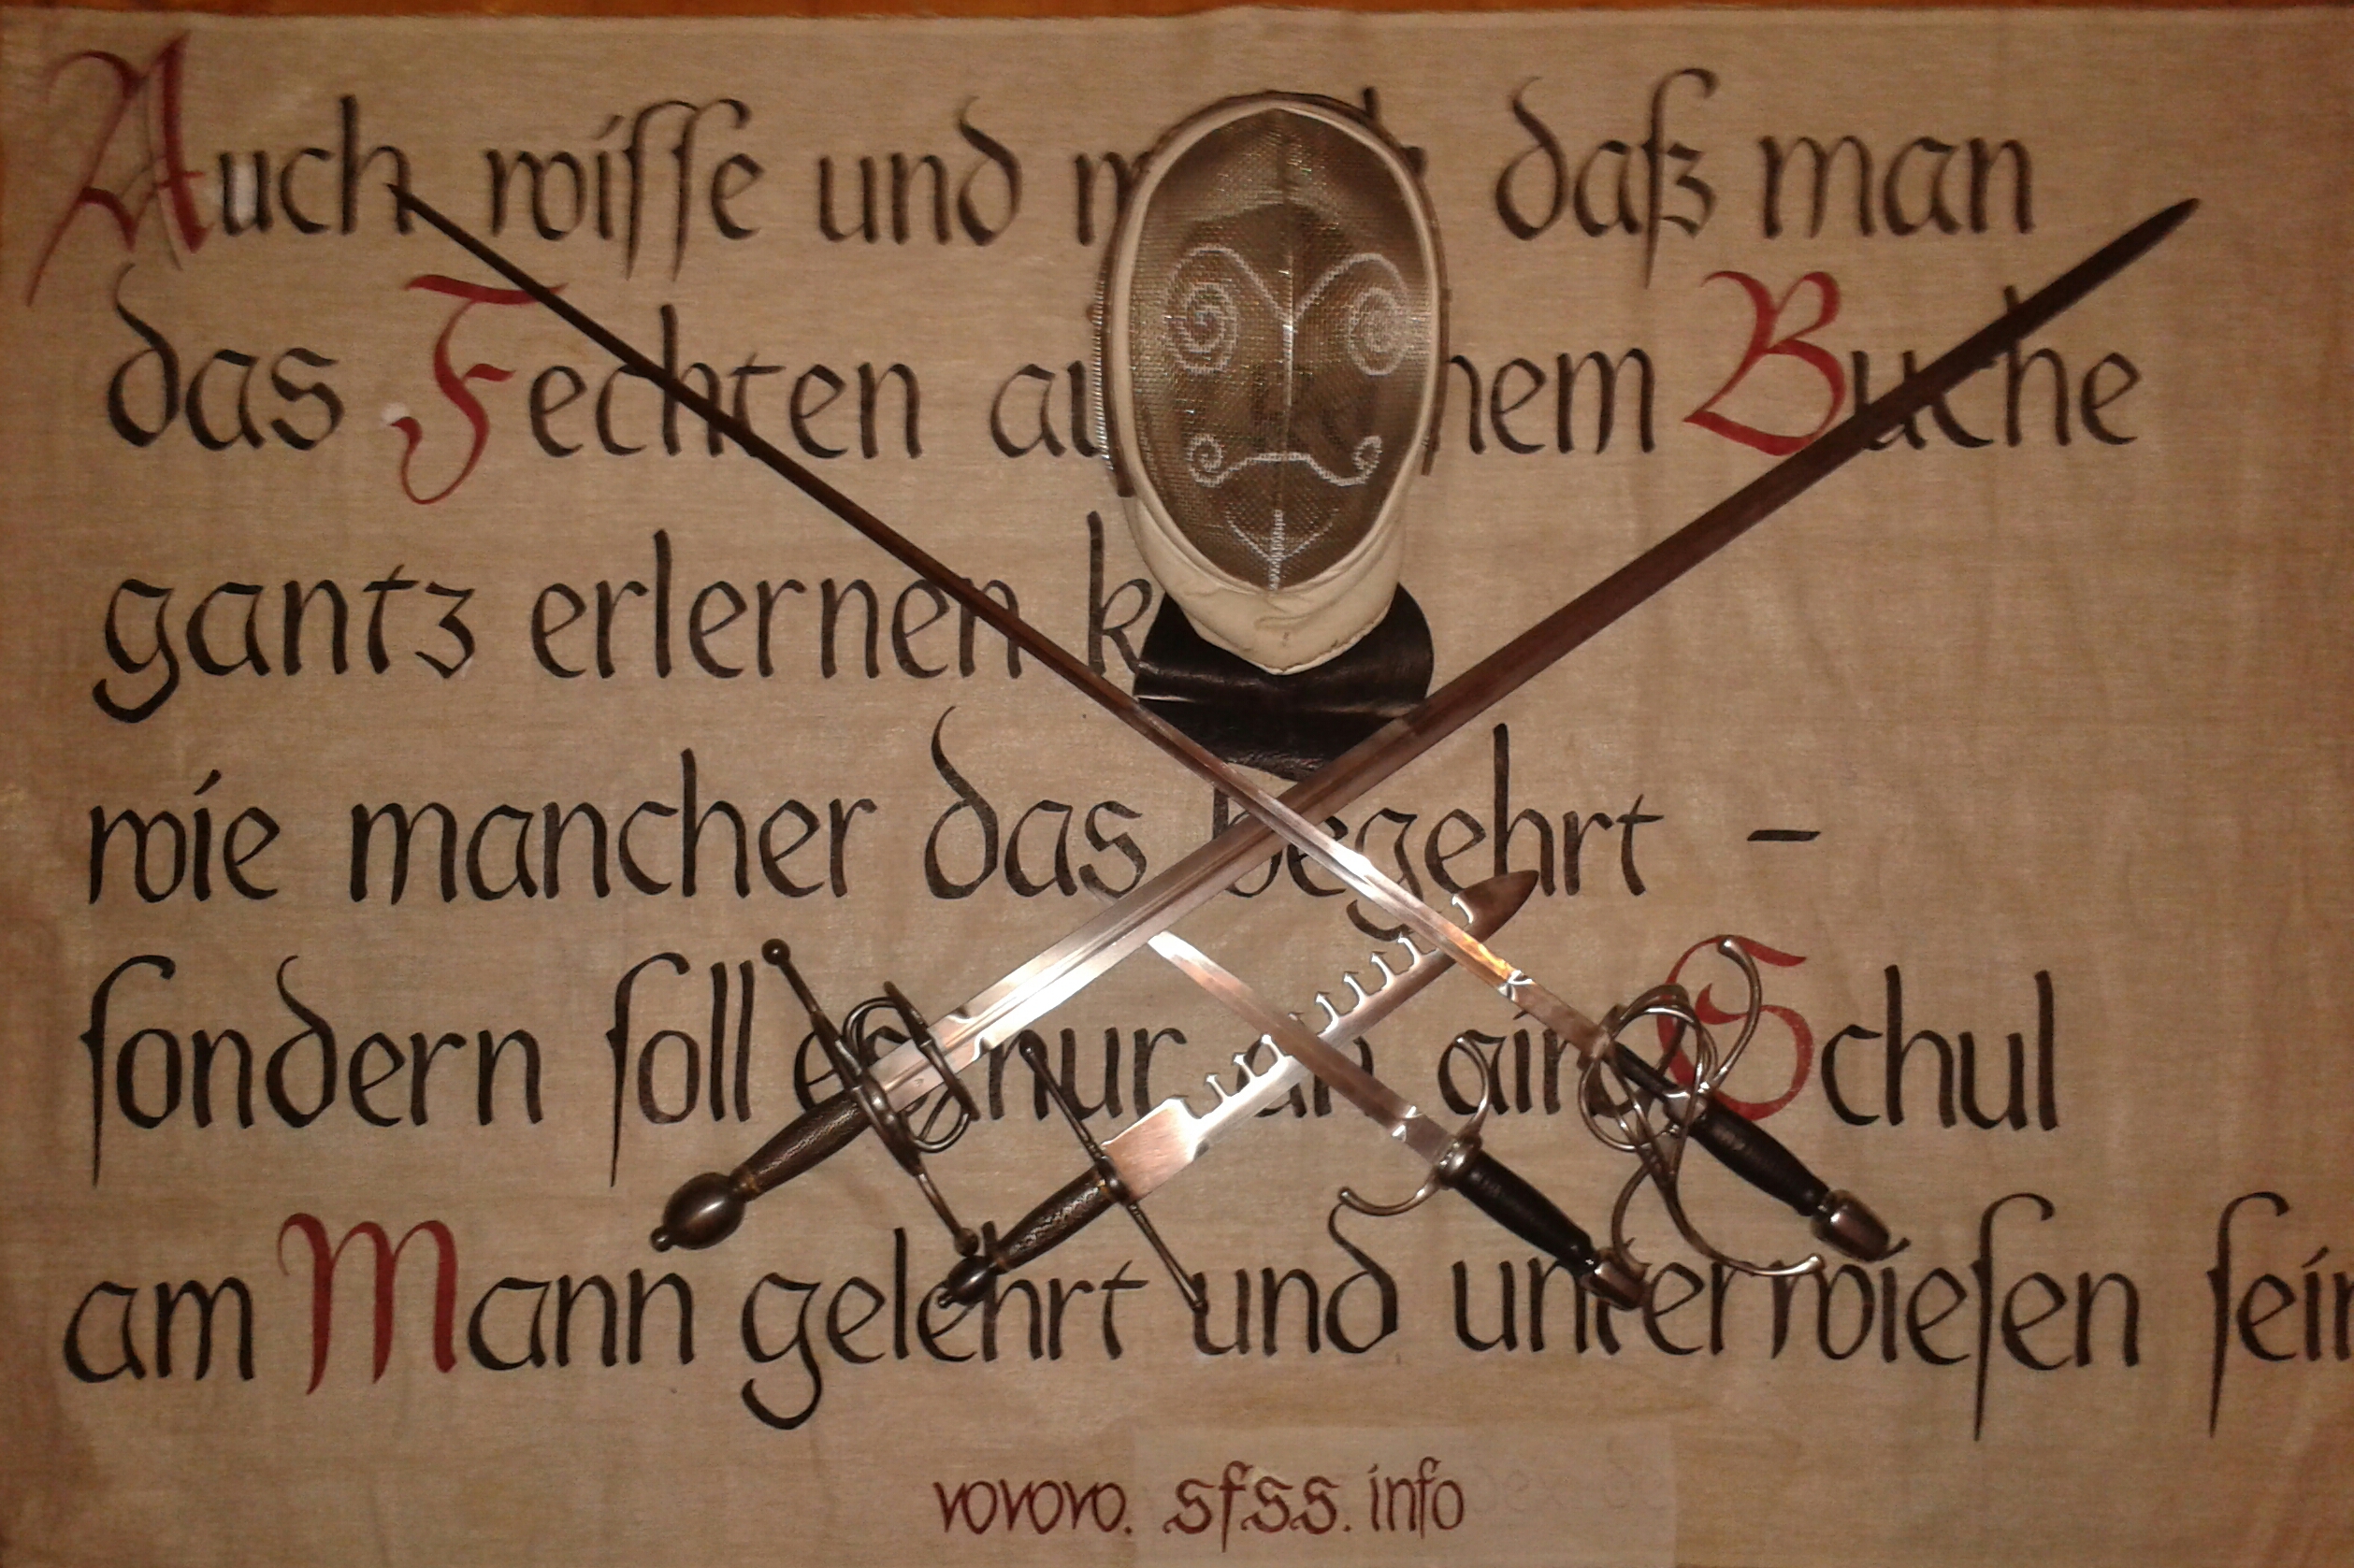 Auch wiſſe und daß man
das Fechten Buche
gantz erlernen
wie mancher das begehrt –
ſondern ſoll es nur an Schul
am Mann gelehrt und unterwieſen ſein
www.sfss.info